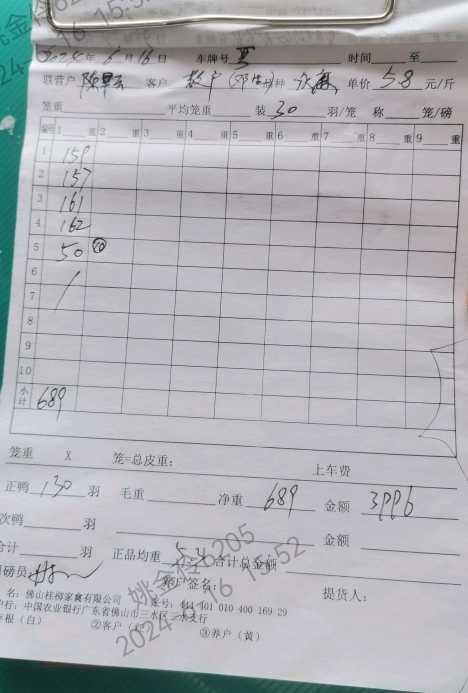 2024年 6月16日 车牌号 时间 至
联营户 客户 散户 种 单价 5.8 元/斤
笼重 平均笼重 装 30 羽/笼 称 笼/磅
编号 1 重 2 重 3 重 4 重 5 重 6 重 7 重 8 重 9 重
1 159
2 157
3 161
4 162
5 50 ⑩
6
7
8
9
10
小计 689
笼重 X 笼=总皮重: 上车费
正鸭 130 羽 毛重 净重 689 金额 3996
次鸭 羽 金额
合计 羽 正品均重 5.3 合计总金额
司磅员 客户签名: 提货人:
名: 佛山桂柳家禽有限公司 账号: 401 010 400 169 29
户行: 中国农业银行广东省佛山市三水区 支行
存根（白） ②客户 ③养户（黄）
姚金伶6205
2024-6-16 15:52